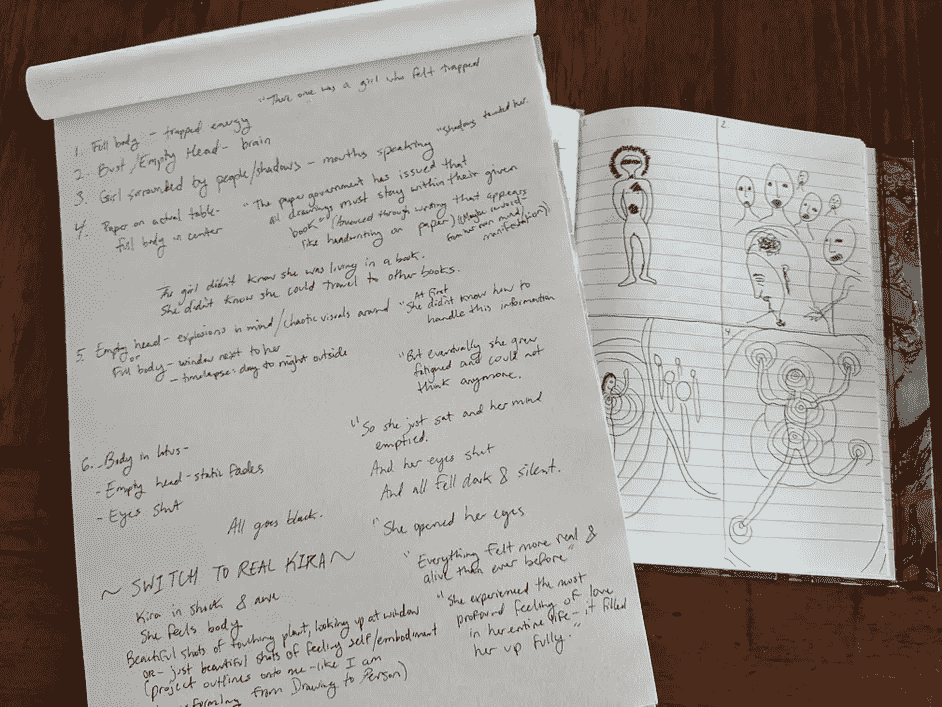 "There once was a girl who felt trapped
1. Full body - trapped energy
2. Bust/Empty Head - brain
3. Girl surrounded by people/shadows - mouths speaking
"Shadows taunted her.
4. Paper on actual table -
full body in center
"The paper government has issued that
all drawings must stay within their given
book" (Announced through writing that appears
like handwriting on paper) (Maybe record
from her own mind/
manifestation)
The girl didn't know she was living in a book.
She didn't know she could travel to other books.
5. Empty head - explosions in mind/chaotic visuals around
or
Full body - window next to her
- timelapse: day to night outside
"At first
She didn't know how to
handle this information
"But eventually she grew
fatigued and could not
think anymore.
6. - Body in lotus -
- Empty head - static fades
- Eyes shut
"So she just sat and her mind
emptied.
And her eyes shut
And all fell dark & silent.
All goes black.
"She opened her eyes
~ SWITCH TO REAL KIRA ~
"Everything felt more real &
alive than ever before"
Kira in shock & awe
She feels body
Beautiful shots of touching plant, looking up at window
or - just beautiful shots of feeling self/embodiment
(project outlines onto me - like I am
transforming from Drawing to Person)
"She experienced the most
profound feeling of love
in her entire life - it filled
her up fully."
2.
4